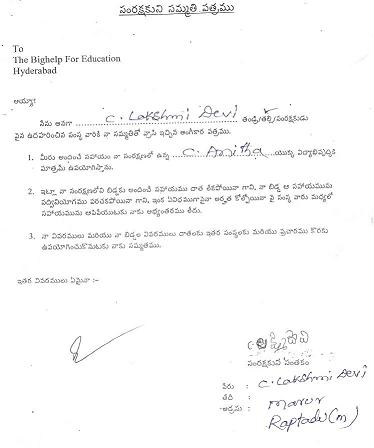 సంరక్షకుని సమ్మతి పత్రము
To
The Bighelp For Education
Hyderabad
అయ్యా!
నేను అనగా C. Lakshmi Devi తండ్రి/తల్లి/సంరక్షకుడు
పైన ఉదహరించిన సంస్థ వారికి నా సమ్మతితో వ్రాసి ఇచ్చిన అంగీకార పత్రము.
1. మీరు అందించే సహాయం నా సంరక్షణలో ఉన్న C. Anitha యొక్క విద్యాభివృద్ధికి
మాత్రమే ఉపయోగిస్తాను.
2. ఇట్లా నా సంరక్షణలోని బిడ్డకు అందించే సహాయము దాత లేకపోయినా గాని, నా బిడ్డ ఆ సహాయమును
సద్వినియోగము పరచకపోయినా గాని, ఇంక ఏవిధముగానైనా అర్హత కోల్పోయినా పై సంస్థ వారు మధ్యలో
సహాయమును ఆపివేయుటకు నాకు అభ్యంతరము లేదు.
3. నా వివరములు మరియు నా బిడ్డల వివరములు దాతలకు ఇతర సంస్థలకు మరియు ప్రచారము కొరకు
ఉపయోగించుకొనుటకు నాకు సమ్మతము.
ఇతర వివరములు ఏమైనా :-
సంరక్షకుని సంతకం
పేరు : C. Lakshmi Devi
తేది :
అడ్రసు : Marur
Raptadu (m)